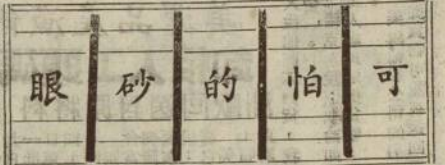 可怕的砂眼